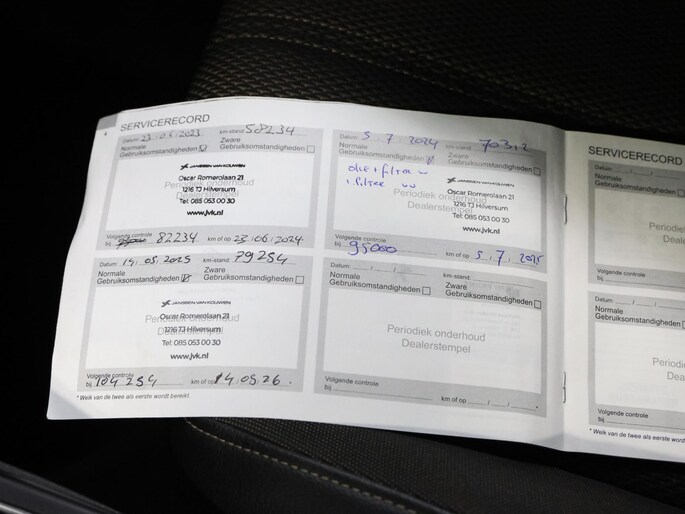 4
SERVICERECORD
Datum: 23.05.2023 km-stand: 508234
Normale Gebruiksomstandigheden
Zware Gebruiksomstandigheden
Periodiek onderhoud
Dealerstempel
JANSSEN VAN KOUWEN
Oscar Romerolaan 21
1216 TJ Hilversum
Tel: 085 053 00 30
www.jvk.nl
Volgende controle
bij 82234 km of op 23.06.2024
Datum: 5.7.2024 km-stand: 70312
Normale Gebruiksomstandigheden
Zware Gebruiksomstandigheden
olie + filter
i.filter
Periodiek onderhoud
Dealerstempel
JANSSEN VAN KOUWEN
Oscar Romerolaan 21
1216 TJ Hilversum
Tel: 085 053 00 30
www.jvk.nl
Volgende controle
bij 95000 km of op 5.7.2025
Datum: 14.05.2025 km-stand: 79254
Normale Gebruiksomstandigheden
Zware Gebruiksomstandigheden
Periodiek onderhoud
Dealerstempel
JANSSEN VAN KOUWEN
Oscar Romerolaan 21
1216 TJ Hilversum
Tel: 085 053 00 30
www.jvk.nl
Volgende controle
bij 104254 km of op 14.05.26.
Datum: km-stand:
Normale Gebruiksomstandigheden
Zware Gebruiksomstandigheden
Periodiek onderhoud
Dealerstempel
Volgende controle
bij km of op *
* Welk van de twee als eerste wordt bereikt.
SERVICERECORD
Datum:
Normale
Gebruiksomstandigheden
Periodiek
Dealerste
Volgende controle
bij
Datum:
Normale
Gebruiksomstandigheden
Periodiek
Dealerste
Volgende controle
bij
* Welk van de twee als eerste wordt